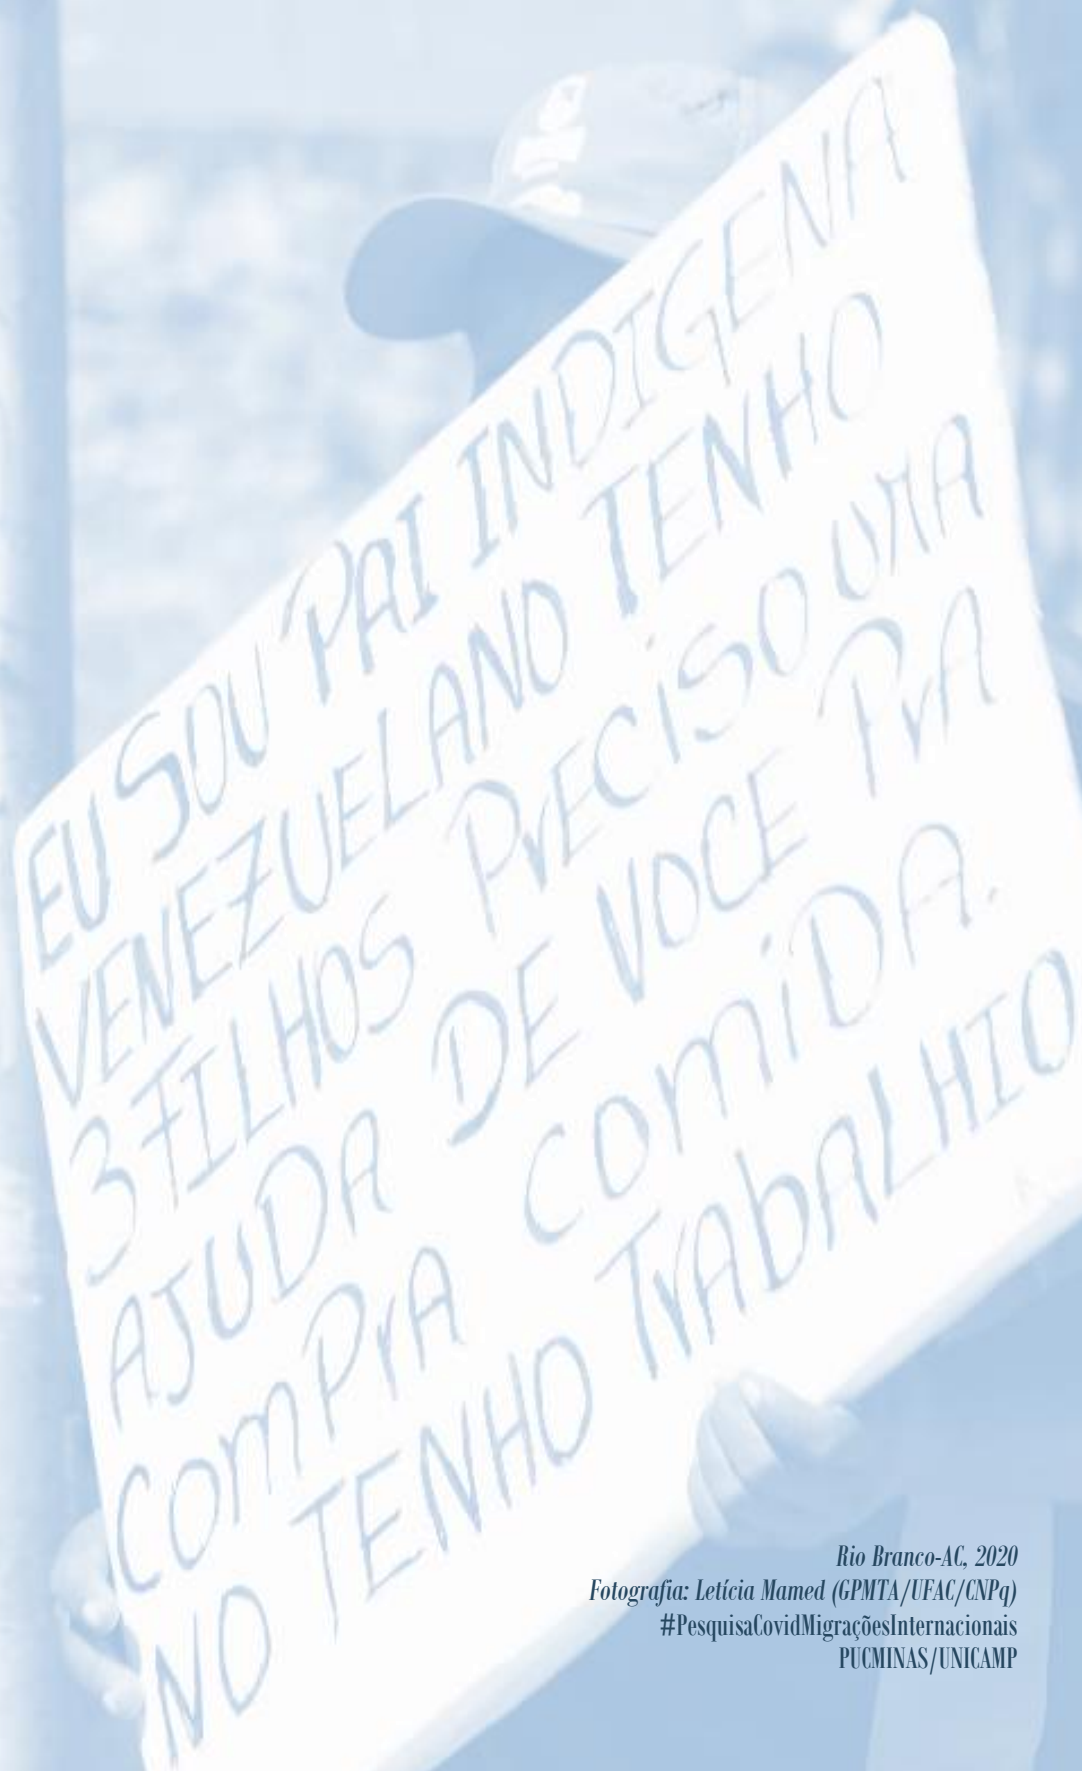 EU SOU PAI INDIGENA
VENEZUELANO TENHO
3 FILHOS PrECiSO UMA
AJUDA DE VOCE PrA
COmPrA COmiDA.
NO TENHO TrAbALHIO
Rio Branco-AC, 2020
Fotografia: Letícia Mamed (GPMTA/UFAC/CNPq)
#PesquisaCovidMigraçõesInternacionais
PUCMINAS/UNICAMP